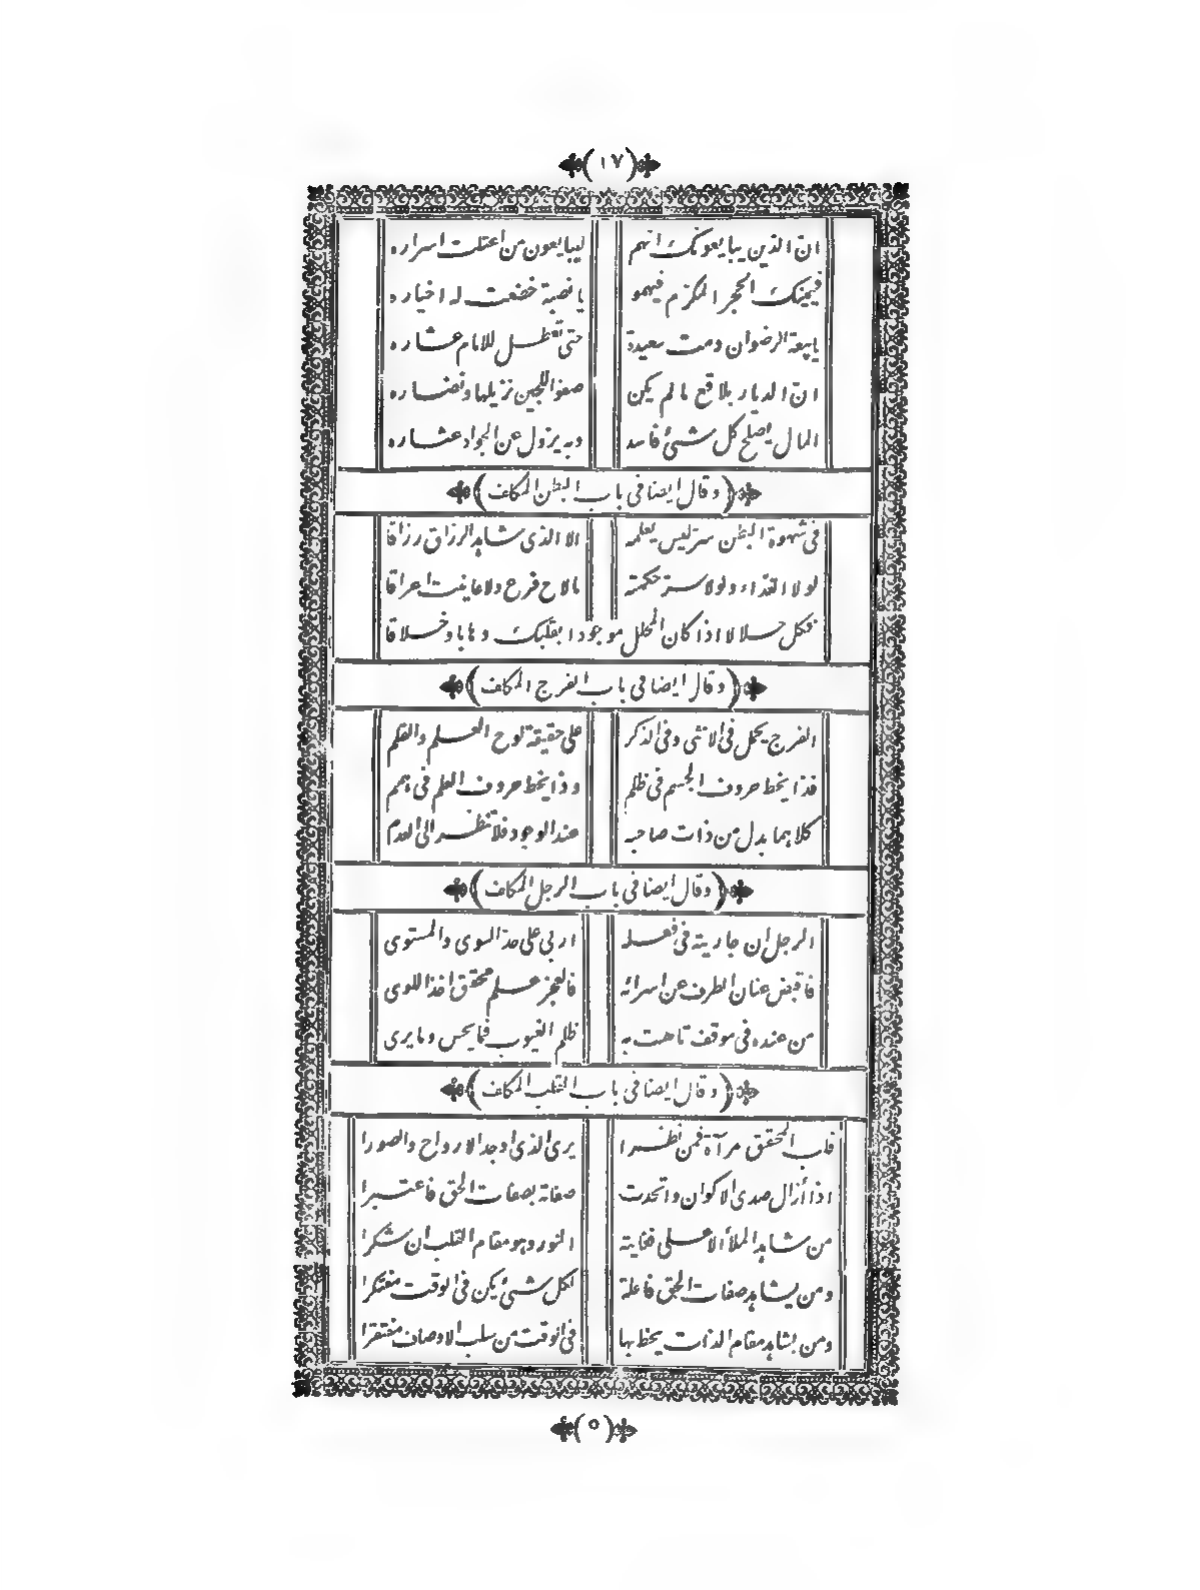 (١٧)
انّ الذين يبايعونك انهم ليبايعون من اعتلت اسراره
فيمينك الحجر المكرّم فيهمو يا نصبة خضعت له اخياره
يا بيعة الرضوان دمت سعيدة حتى تعطل للامام عشاره
انّ الديار بلاقع مالم يكن صفو اللجين نزيلها ونضاره
المال يصلح كل شئ فاسد وبه يزول عن الجواد عثاره
(وقال ايضا فى باب البطن المكاف)
فى شهوة البطن سرّ ليس يعلمه الا الذى شاهد الرزاق رزاقا
لولا الغذاء ولولا سرّ حكمته مالاح فرع ولا عاينت اعراقا
فكل حلالا اذا كان المحلل موجودا بقلبك وهابا وخلاقا
(وقال ايضا فى باب الفرج المكاف)
الفرج يحمل فى الانثى وفى الذكر على حقيقة لوح العلم والقلم
فذا يخط حروف الجسم فى ظلم وذا يخط حروف العلم فى همم
كلاهما بدل من ذات صاحبه عند الوجود فلا تنظر الى العدم
(وقال ايضا فى باب الرجل المكاف)
الرجل ان جاريته فى فعله اربى على حدّ السوى والمستوى
فاقبض عنان الطرف عن اسرائه فالعجز علم محقق اخذ اللوى
من عنده فى موقف تاهت به ظلم الغيوب فما يحس وما يرى
(وقال ايضا فى باب القلب المكاف)
قلب المحقق مرآة فمن نظرا يرى الذى اوجد الارواح والصورا
اذا أزال صدى الاكوان واتحدت صفاته بصفات الحق فاعتبرا
من شاهد الملأ الاعلى فغايته النور وهو مقام القلب ان شكرا
ومن يشاهد صفات الحق فاعلة لكل شئ يكن فى الوقت مفتكرا
ومن يشاهد مقام الذات يحظ بها فى الوقت من سلب الاوصاف مفتقرا
(٥)